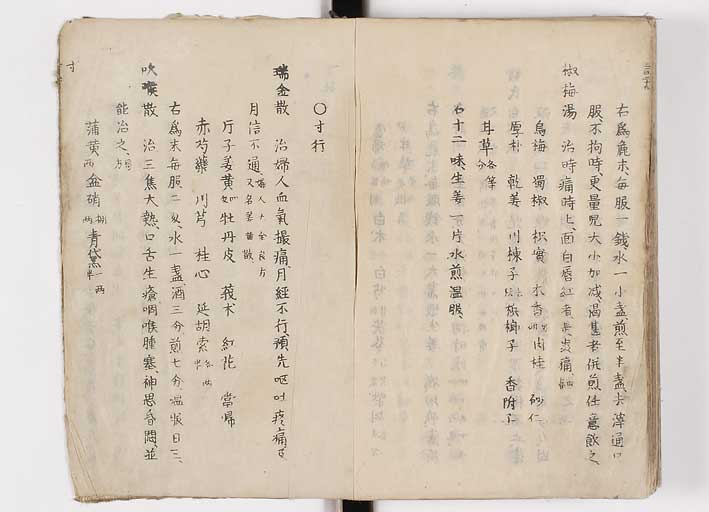 右爲麁末、毎服一錢水一小盞煎至半盞去滓通口
服、不拘時、更量兒大小加减渇甚者倂煎任意飲之
椒梅湯　治時痛時上、面白唇紅者是虫痛
烏梅　蜀椒　枳實　木香　肉桂　砂仁
厚朴　乾姜　川楝子　檳榔子　香附子
甘草各等分
右十二味生姜一片水煎温服、
〇寸行
瑞金散　治婦人血氣撮痛月經不行、預先嘔吐疼痛
月信不通婦人大全良方又名姜黄散、
片子姜黄　牡丹皮　莪朮　紅花　當歸
赤芍藥　川芎　桂心　延胡索
右爲末毎服二匁、水一盞、酒三分、煎七分、温服日三、
吹喉散　治三焦大熱、口舌生瘡咽喉腫塞、神思昏悶、並
能治之、
蒲黄一两　盆硝　青黛